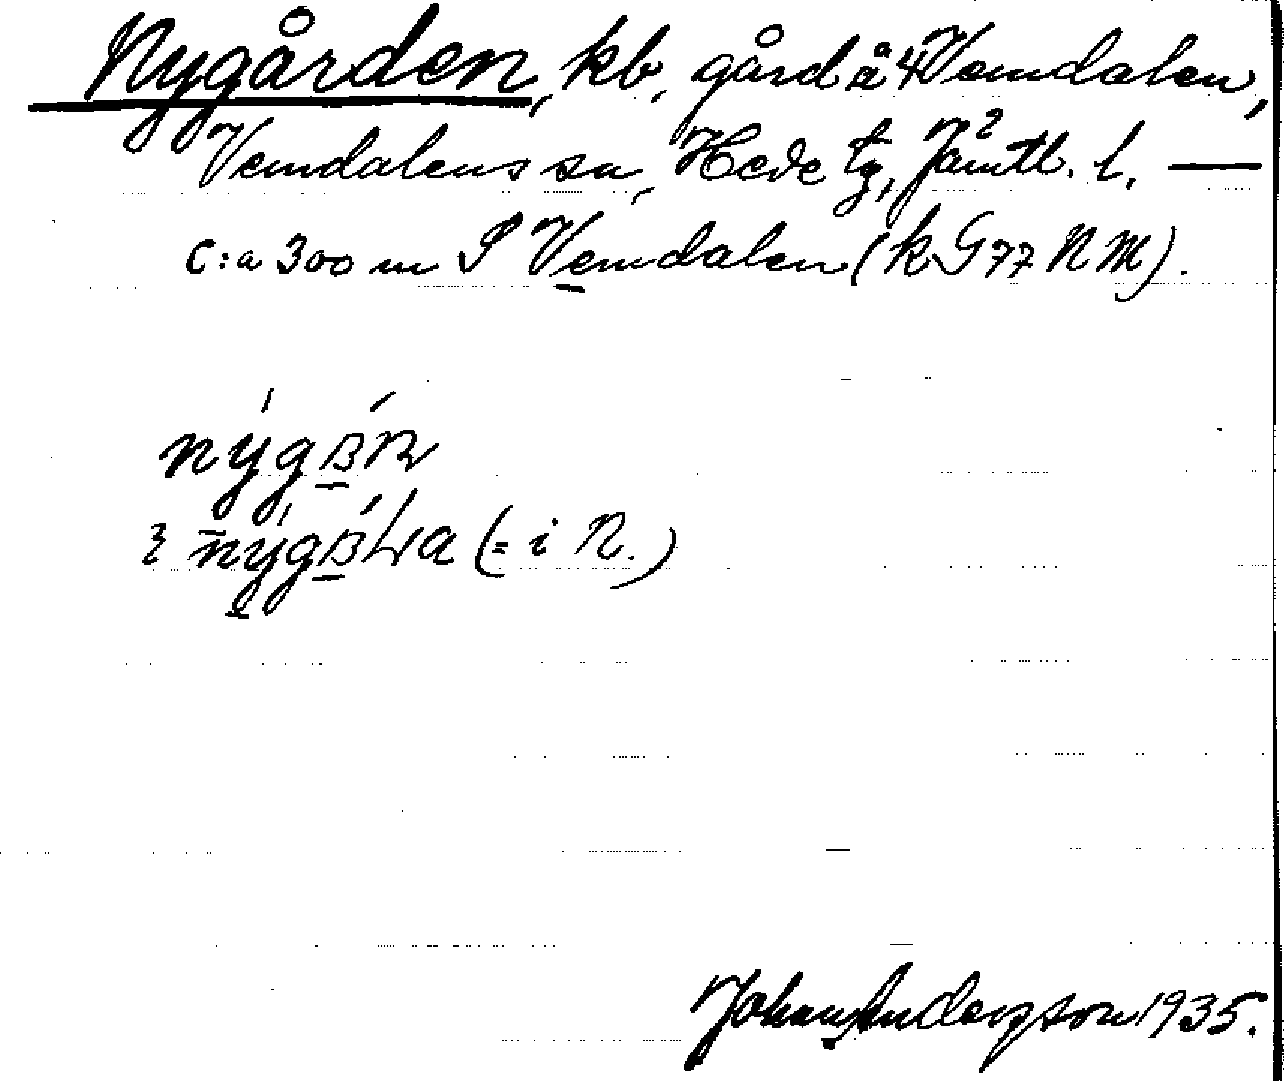 Nygården, kb, gård å 4 Vemdalen,
Vemdalens sn, Hede tg, Jämtl. l. —
c:a 300 m S Vemdalen (k G 77 NM).
(= i N.)
Johan Anderzson 1935.